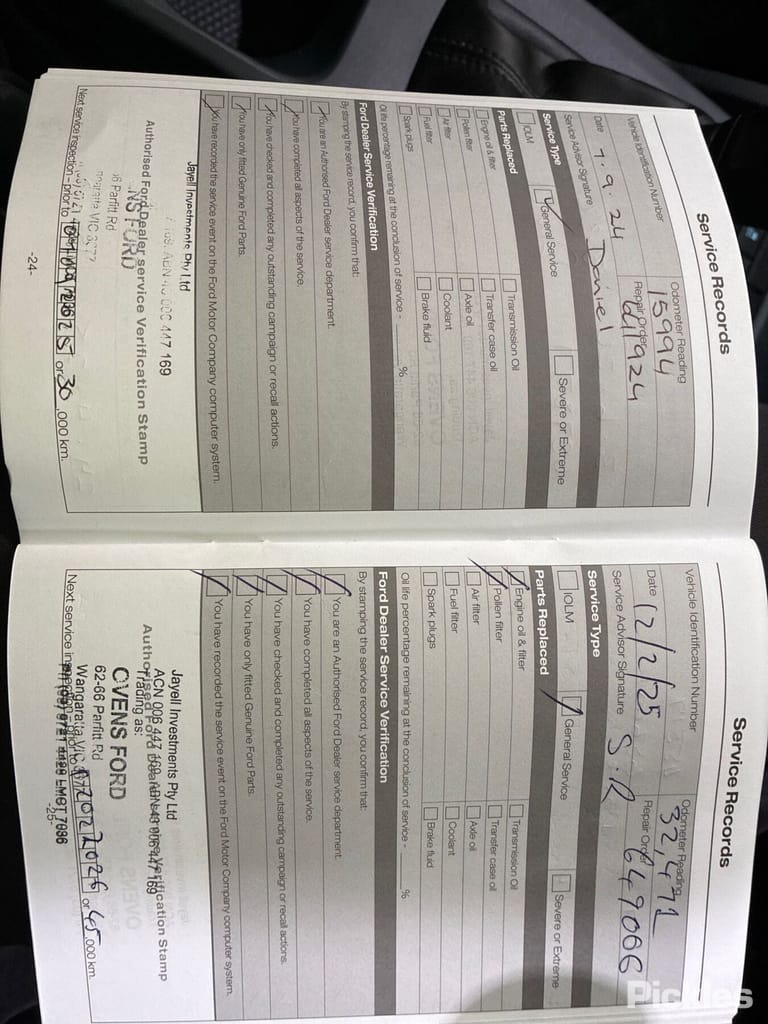 Service Records
Vehicle Identification Number
Odometer Reading
15994
Date 7.9.24
Repair Order
Service Advisor Signature Daniel
Service Type
IOLM
General Service
Severe or Extreme
Parts Replaced
Engine oil & filter
Transmission Oil
Pollen filter
Transfer case oil
Air filter
Axle oil
Fuel filter
Coolant
Spark plugs
Brake fluid
Oil life percentage remaining at the conclusion of service - %
Ford Dealer Service Verification
By stamping the service record, you confirm that:
You are an Authorised Ford Dealer service department.
You have completed all aspects of the service.
You have checked and completed any outstanding campaign or recall actions.
You have only fitted Genuine Ford Parts.
You have recorded the service event on the Ford Motor Company computer system.
Jayell Investments Pty Ltd
447 169
Authorised Ford Dealer service Verification Stamp
NS FORD
Parfitt Rd
VIC
Next service inspection - prior to or 30 ,000 km.
-24-
Service Records
Vehicle Identification Number
Odometer Reading
32,471
Date 12/2/25
Repair Order 649066
Service Advisor Signature S.R
Service Type
IOLM
General Service
Severe or Extreme
Parts Replaced
Engine oil & filter
Transmission Oil
Pollen filter
Transfer case oil
Air filter
Axle oil
Fuel filter
Coolant
Spark plugs
Brake fluid
Oil life percentage remaining at the conclusion of service - %
Ford Dealer Service Verification
By stamping the service record, you confirm that:
You are an Authorised Ford Dealer service department.
You have completed all aspects of the service.
You have checked and completed any outstanding campaign or recall actions.
You have only fitted Genuine Ford Parts.
You have recorded the service event on the Ford Motor Company computer system.
Jayell Investments Pty Ltd
ACN 006 447 169 ABN 43 006 447 169
Authorised Ford Dealer service Verification Stamp
Trading as:
OVENS FORD
62-66 Parfitt Rd
Wangaratta VIC
Next service inspection - prior to or 45 ,000 km.
LMCT 7096
-25-
Pickles